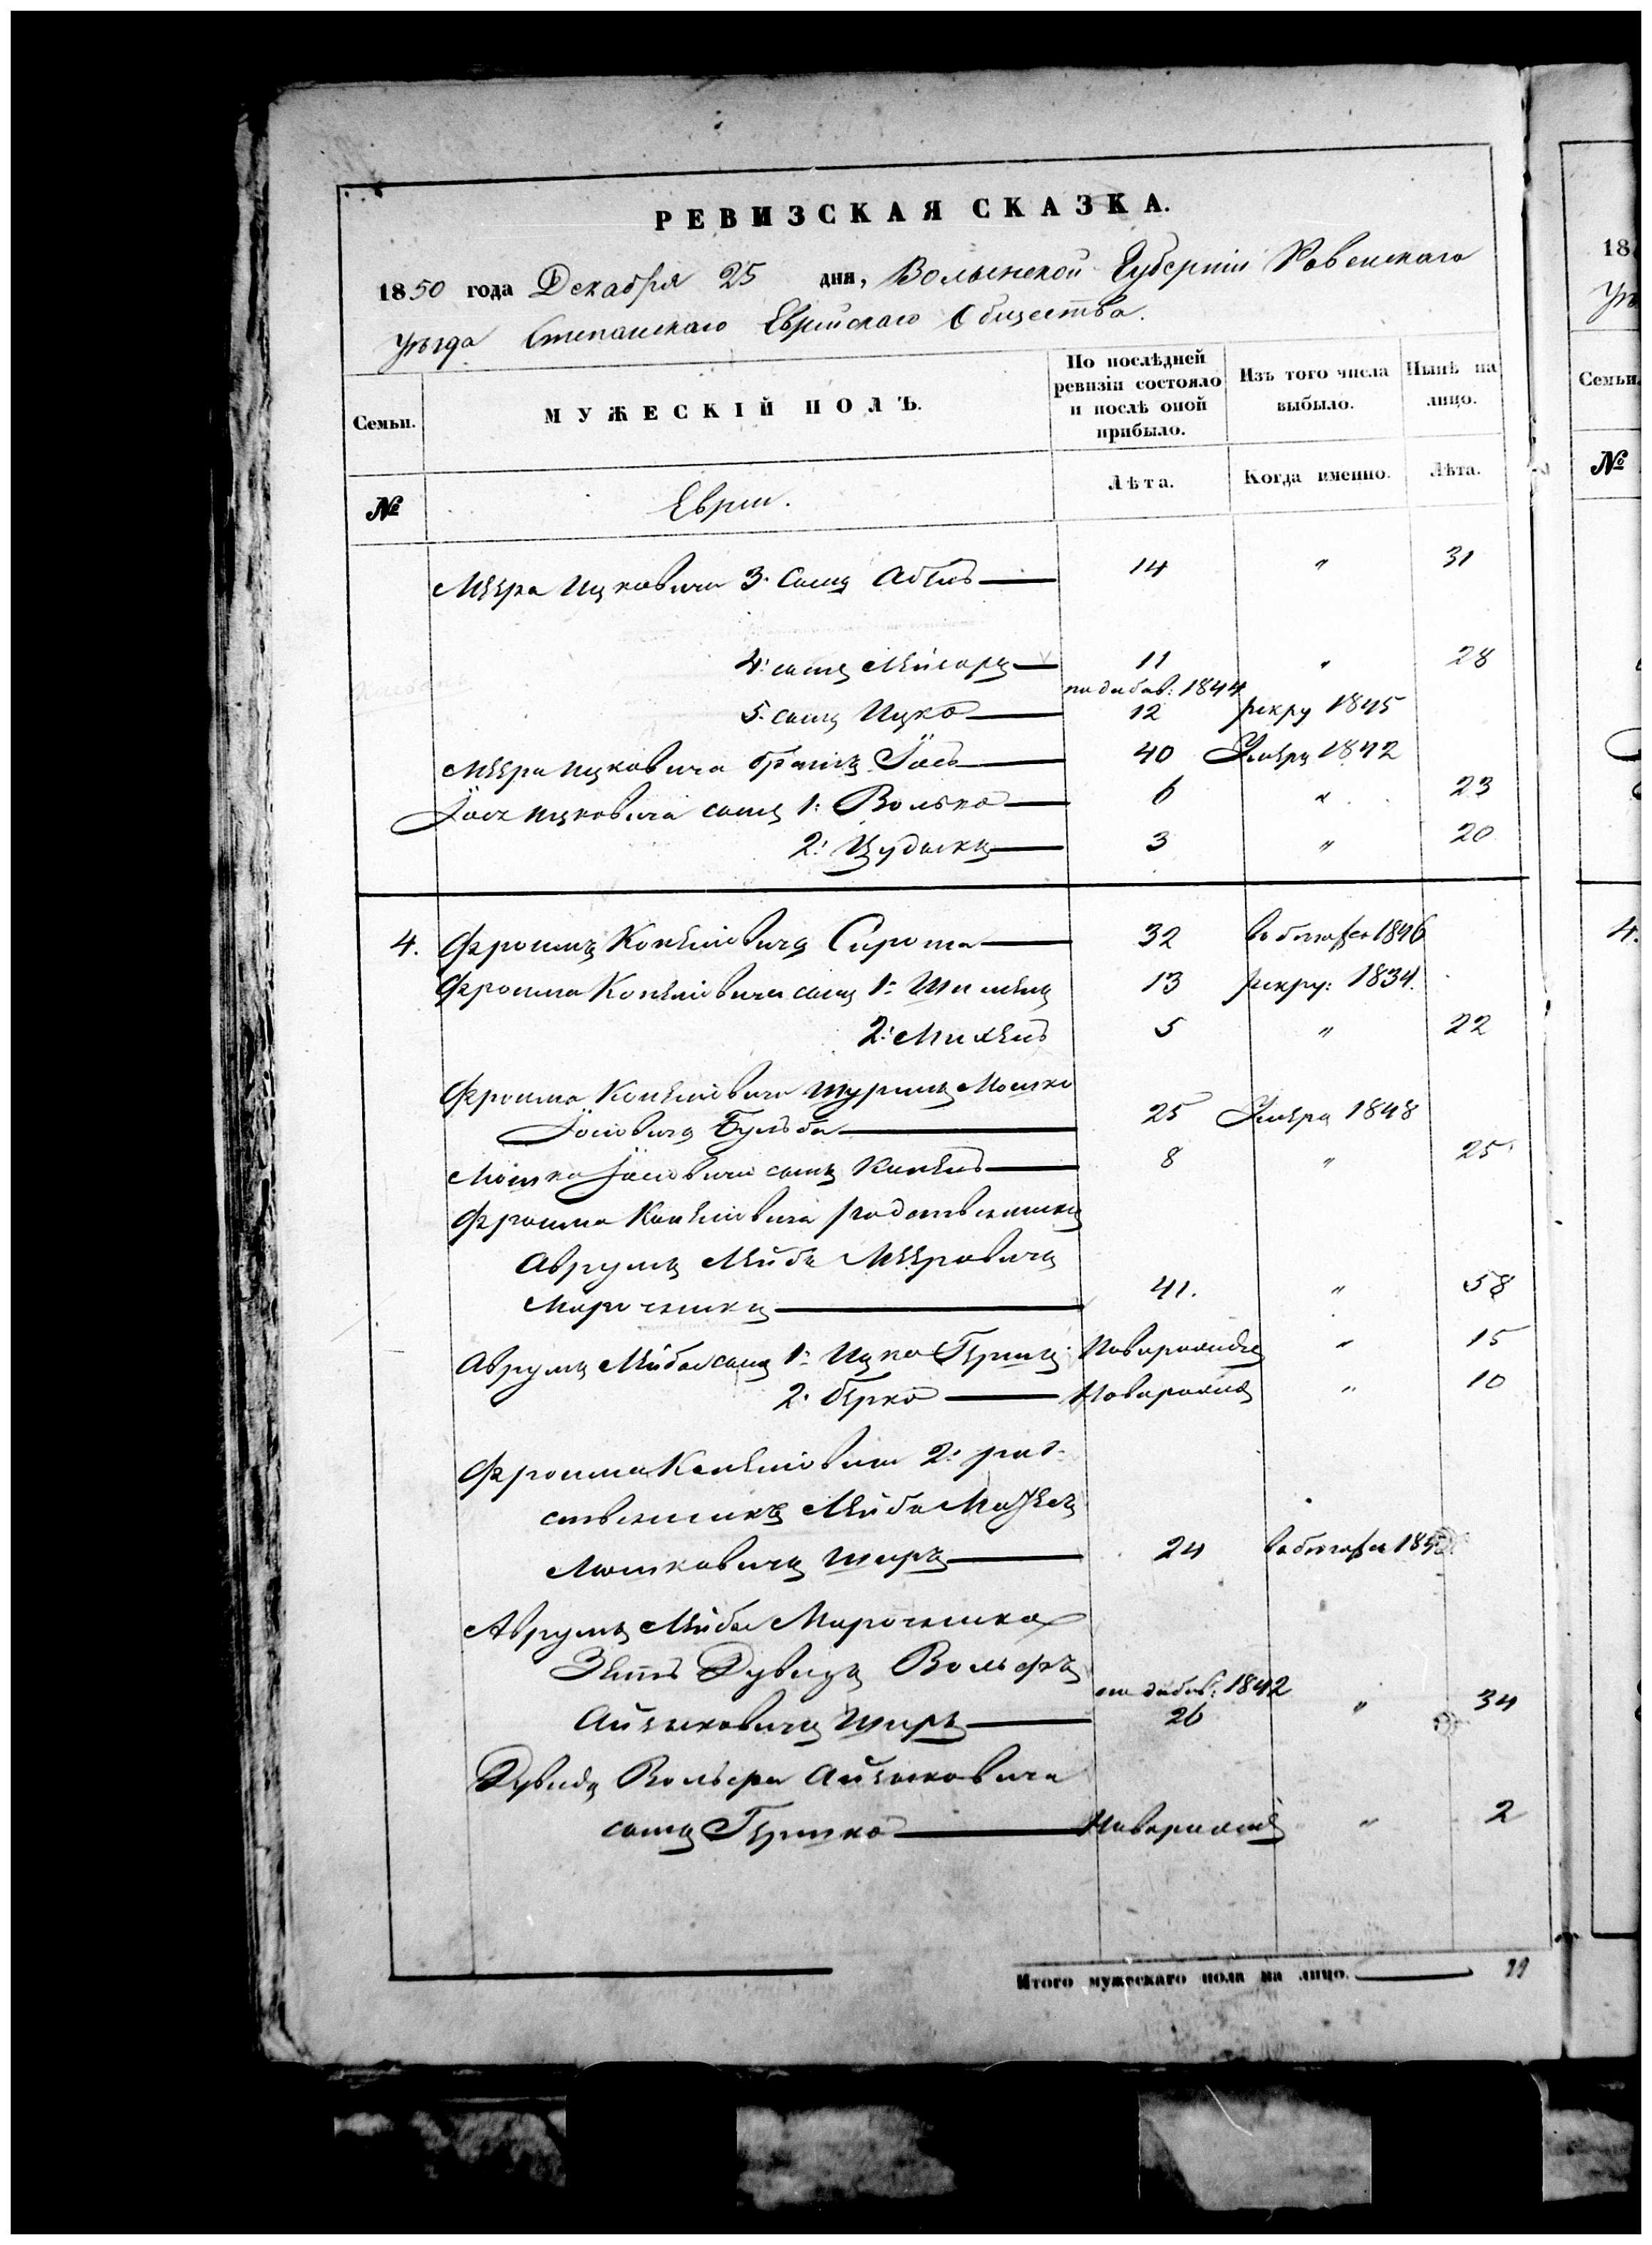 РЕВИЗСКАЯ СКАЗКА.
1850 года Декабря 25 дня, Волынской Губернiи Ровенскаго
Уѣзда Степанскаго Еврейскаго Общества.
Семьи. МУЖЕСКІЙ ПОЛЪ. По послѣдней ревизіи состояло и послѣ оной прибыло. Изъ того числа выбыло. Нынѣ на лицо.
№ Евреи. Лѣта. Когда именно. Лѣта.
Меера Ицковича 3. сынъ Абель 14 " 31
4: сынъ Лейзоръ 11 " 28
по добав: 1844
5. сынъ Ицко 12 рекру 1845
Меера Ицковича братъ Іось 40 Умеръ 1842
Іося Ицковича сынъ 1: Волько 6 " 23
2: 3 " 20
4. Фроимъ Копелiовичъ Сирота 32 1846
Фроима Копелiовича сынъ 1: Шмелъ 13 рекру: 1834.
2: Михель 5 " 22
Фроима Копелiовича шуринъ Мошко
Іосiовичъ Бульба 25 Умеръ 1848
Мошка Іосiовича сынъ Копель 8 " 25
Фроима Копелiовича родственникъ
Аврумъ Лейба Мееровичъ
Марочникъ 41. " 58
Аврумъ Лейбы сынъ 1: Ицко Гершъ Новорожде " 15
2. Берко Новорожд " 10
Фроима Копелiовича 2: род-
ственникъ Лейба
Мошковичъ Ширъ 24
Аврумъ Лейбы Марочника
Зять Дувидъ Вольфъ
по добав: 1842
Айзыковичъ Ширъ 26 " 34
Дувида Вольфа Айзыковича
сынъ Гершко Новорожд " 2
Итого мужескаго пола на лицо.
18
Уѣ
Семьи.
№
4.